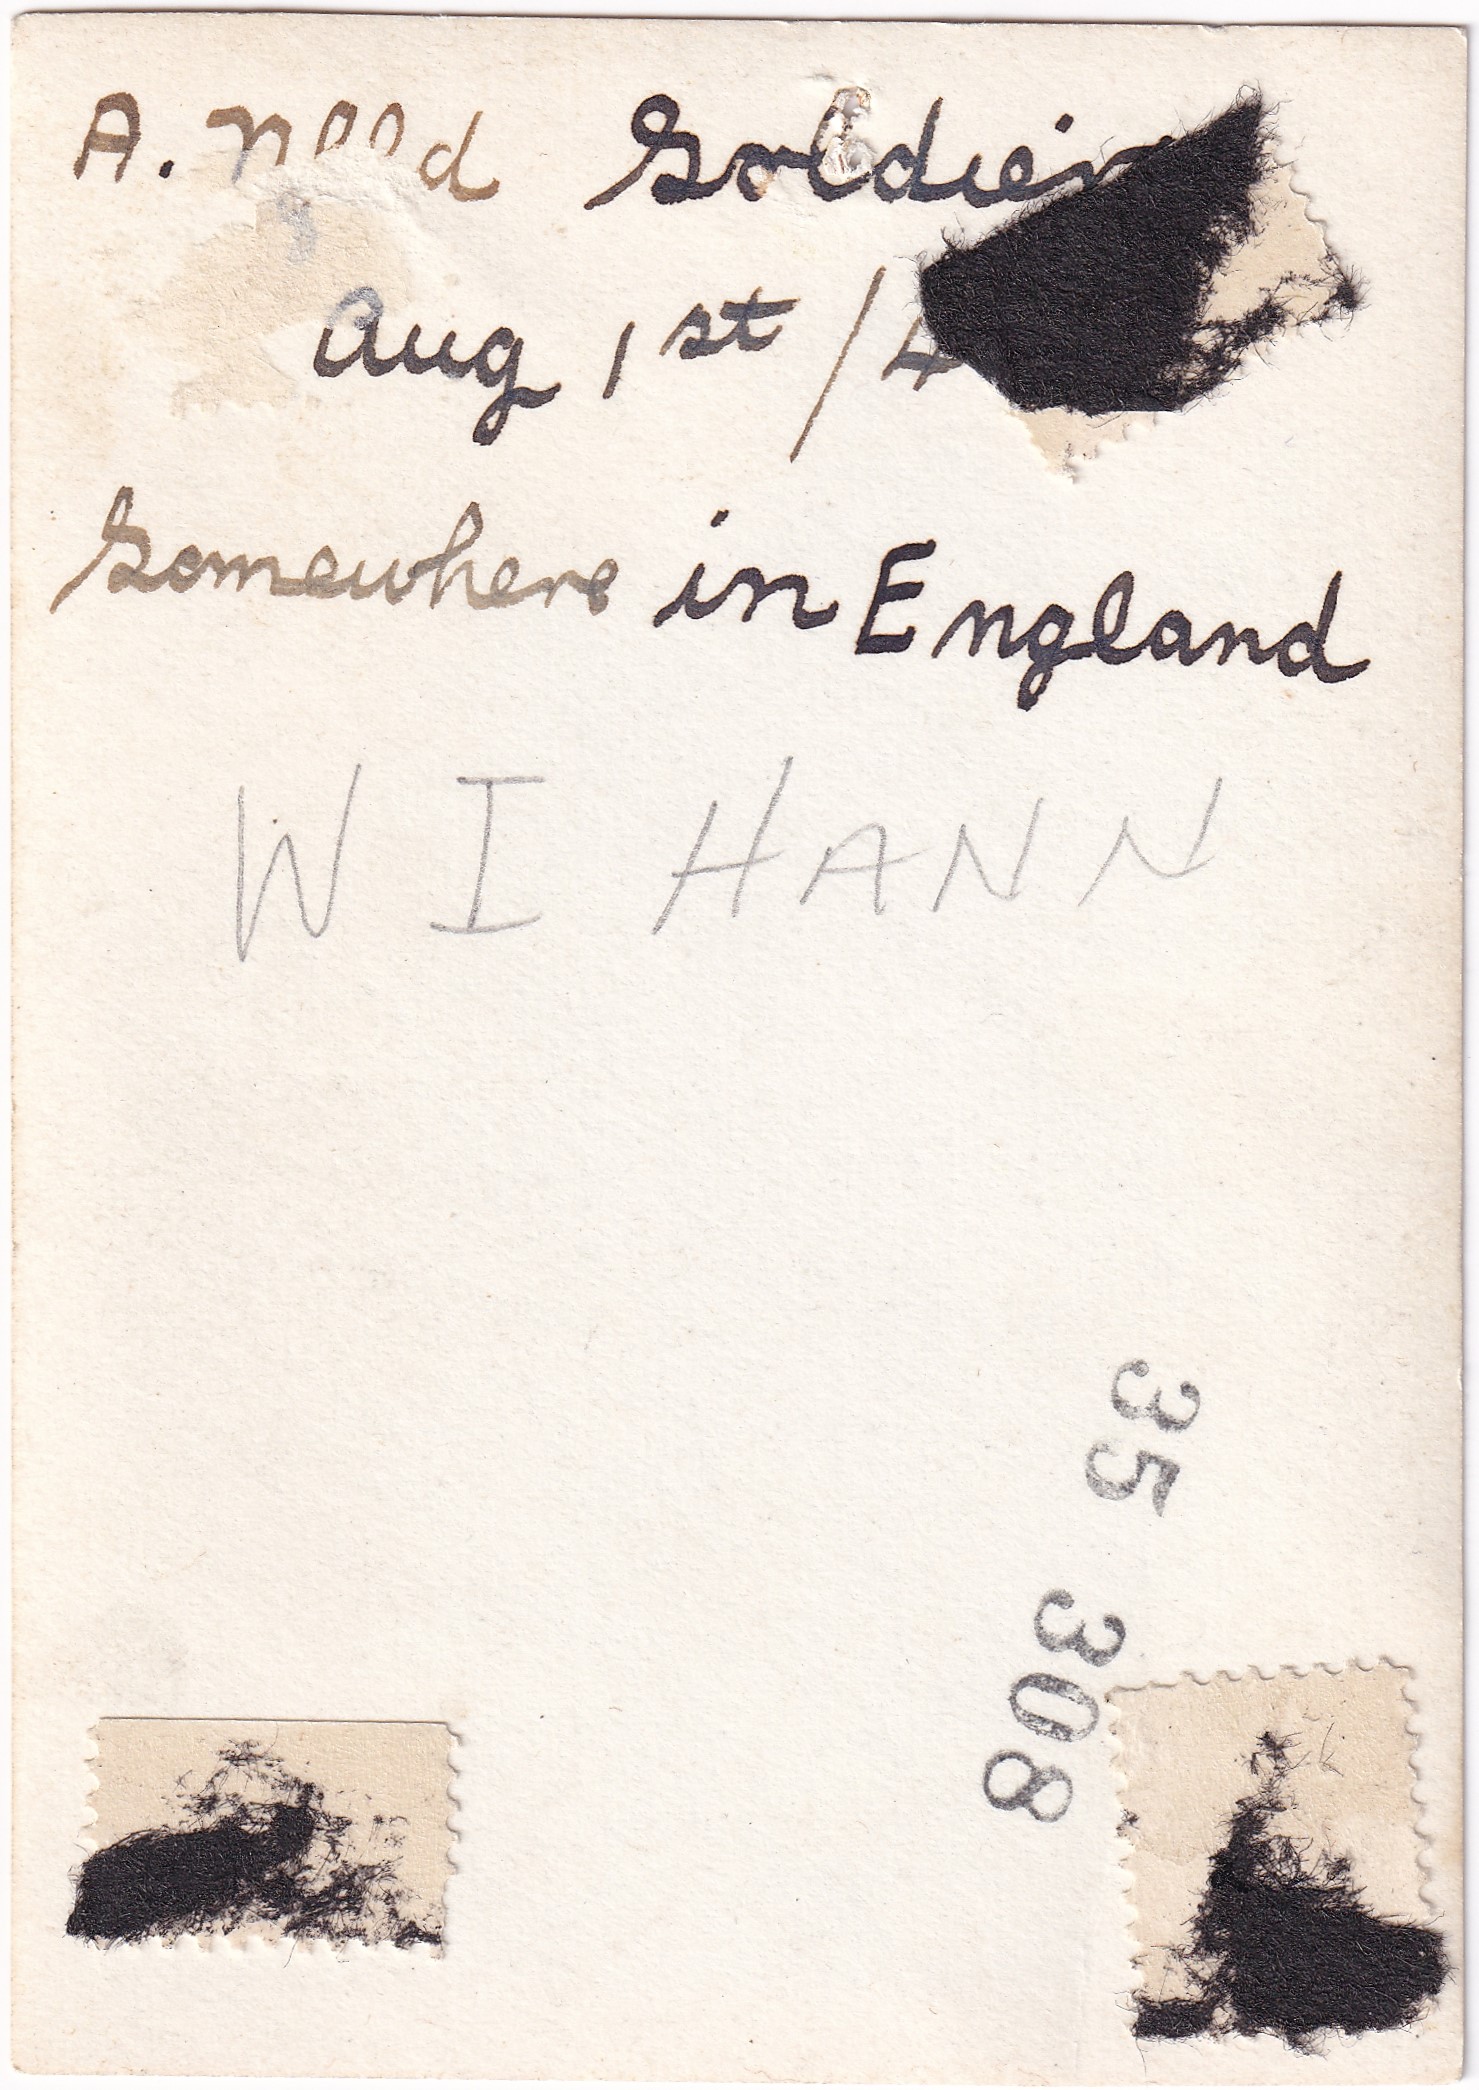 A. Need Soldier
Aug 1st /4
Somewhere in England
W I HANN
35 308